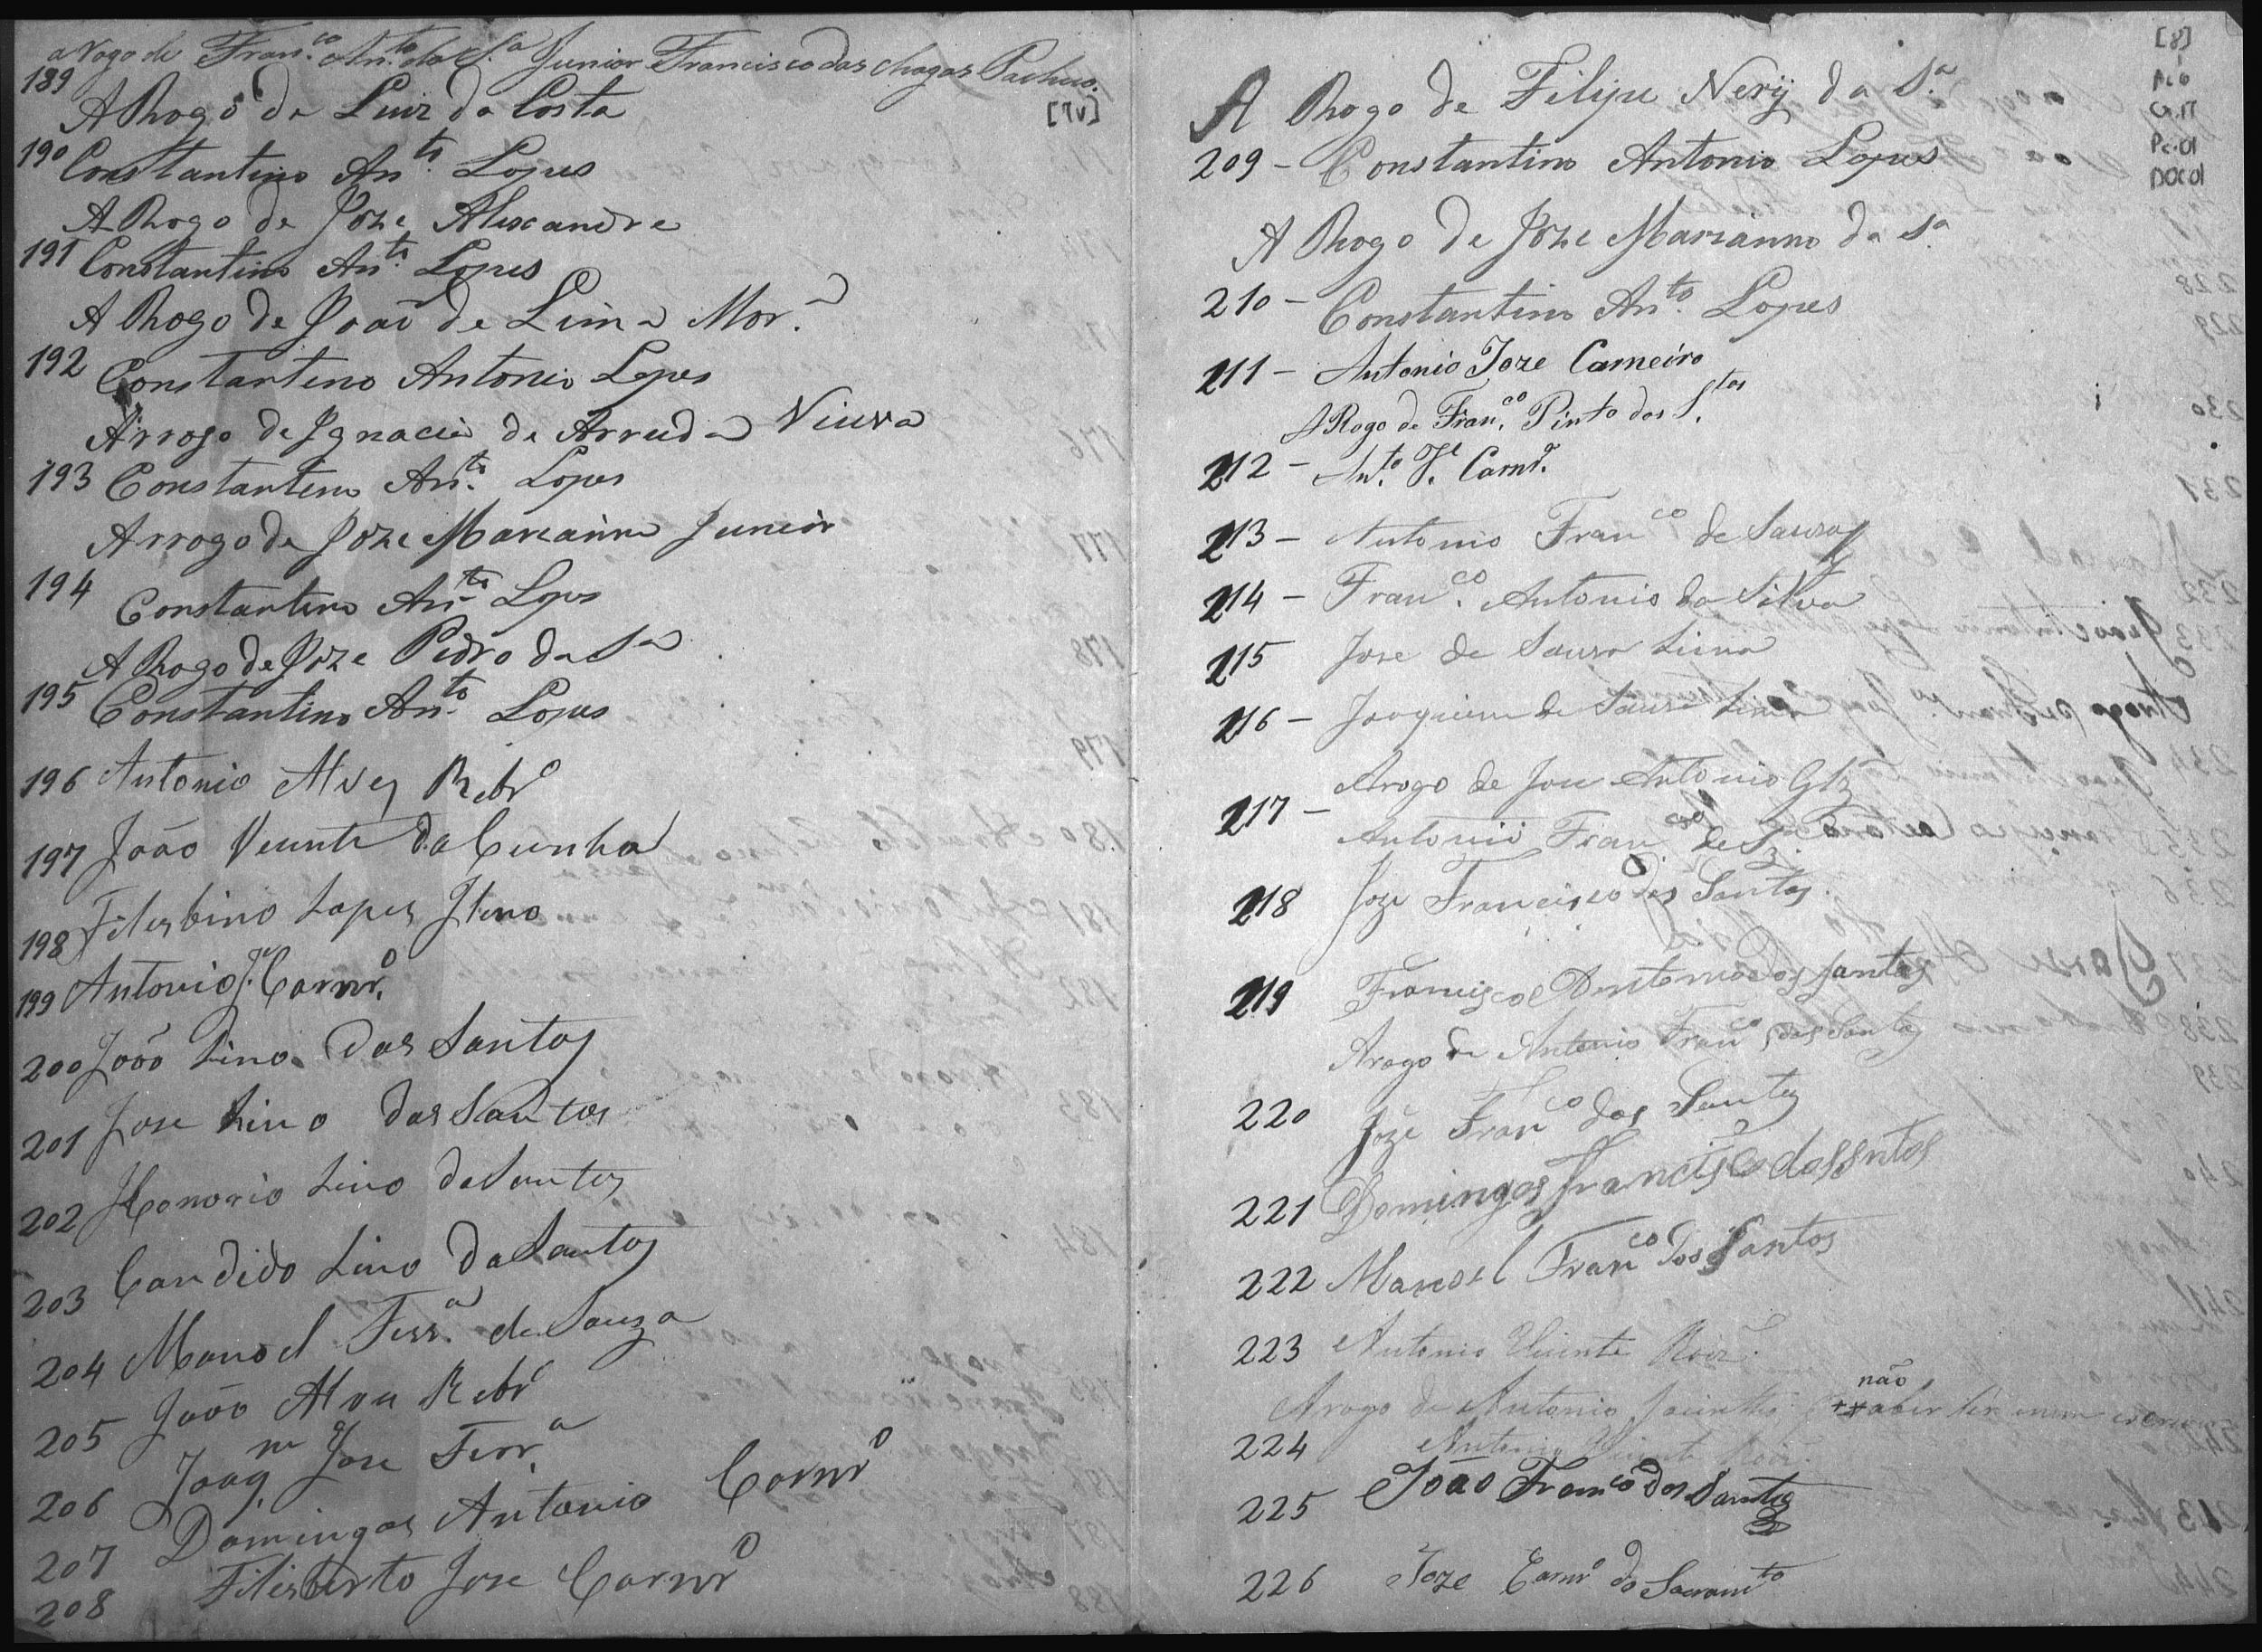 a Rogo de Fran.co Anto da S.a Junior Francisco das Chagas Pacheco.
189
[7v]
A Rhogo de Luiz da Costa
190 Constantino An.to Lopes
A Rhogo de Joze Alexandre
191 Constantino An.to Lopes
A Rhogo de Joaõ de Lima Mor.a
192 Constantino Antonio Lopes
Arrogo de Ignacia de Arruda Viuva
193 Constantino An.to Lopes
Arrogo de Joze Marianno Junior
194 Constantino An.to Lopes
A Rhogo de Joze Pedro da S.a
195 Constantino An.to Lopes
196 Antonio Alves Ribr.o
197 João Vicente da Cunha
198 Filesbino Lopes
199 Antonio J.e Carnr.o
200 João Lino dos Santos
201 Jose Lino dos Santos
202 Honorio Lino da Santos
203 Candido Lino da Santos
204 Manoel Ferr.a de Souza
205 João Alves Ribr.o
206 Joaq.m Jose Ferr.a
207 Domingos Antonio Carnr.o
208 Filisberto Jose Carnr.o
[8]
A Rhogo de Filipe Nerÿ da S.a
209 - Constantino Antonio Lopes
A Rhogo de Joze Marianno da S.a
210 - Constantino An.to Lopes
211 - Antonio Joze Carneiro
A Rogo de Fran.co Pinto dos S.tos
212 - An.to J.e Carnr.o
213 - Antonio Fran.co de Souza
214 - Fran.co Antonio da Silva
215 Jose de Souza Lima
216 - Joaquim de Souza Lima
Arogo de Joze Antonio Glz
217 - Antonio Fran.co de Sz.a
218 Joze Francisco dos Santos.
219 Francisco Antonio dos Santos
Arogo de Antonio Fran.co dos Santos
220 Joze Fran.co dos Santos
221 Domingos Francisco dos Santos
222 Manoel Fran.co dos Santos
223 Antonio Vicente Roiz.
Arogo de Antonio Jacintho não saber ler nem escrever
224 Antonio Vicente Roiz.
225 João Fran.co dos Santos
226 Joze Carnr.o do Sacram.to